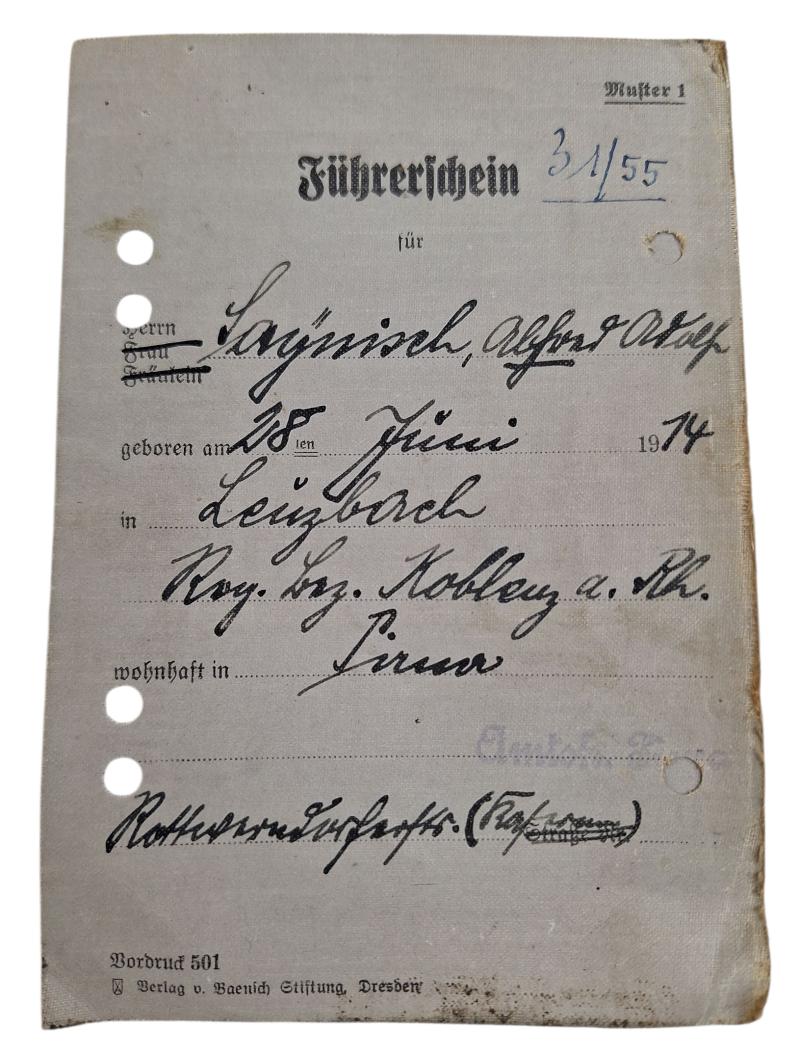 Muster 1
Führerschein 31/55
für
Herrn Saynisch, Alfred Adolf
Frau
Fräulein
geboren am 28ten Juni 1914
in Leuzbach
Reg. Bez. Koblenz a. Rh.
wohnhaft in Pirna
Amtsh. Pirna
Rottwerndorferstr. (Kaserne)
Vordruck 501
Verlag v. Baensch Stiftung, Dresden